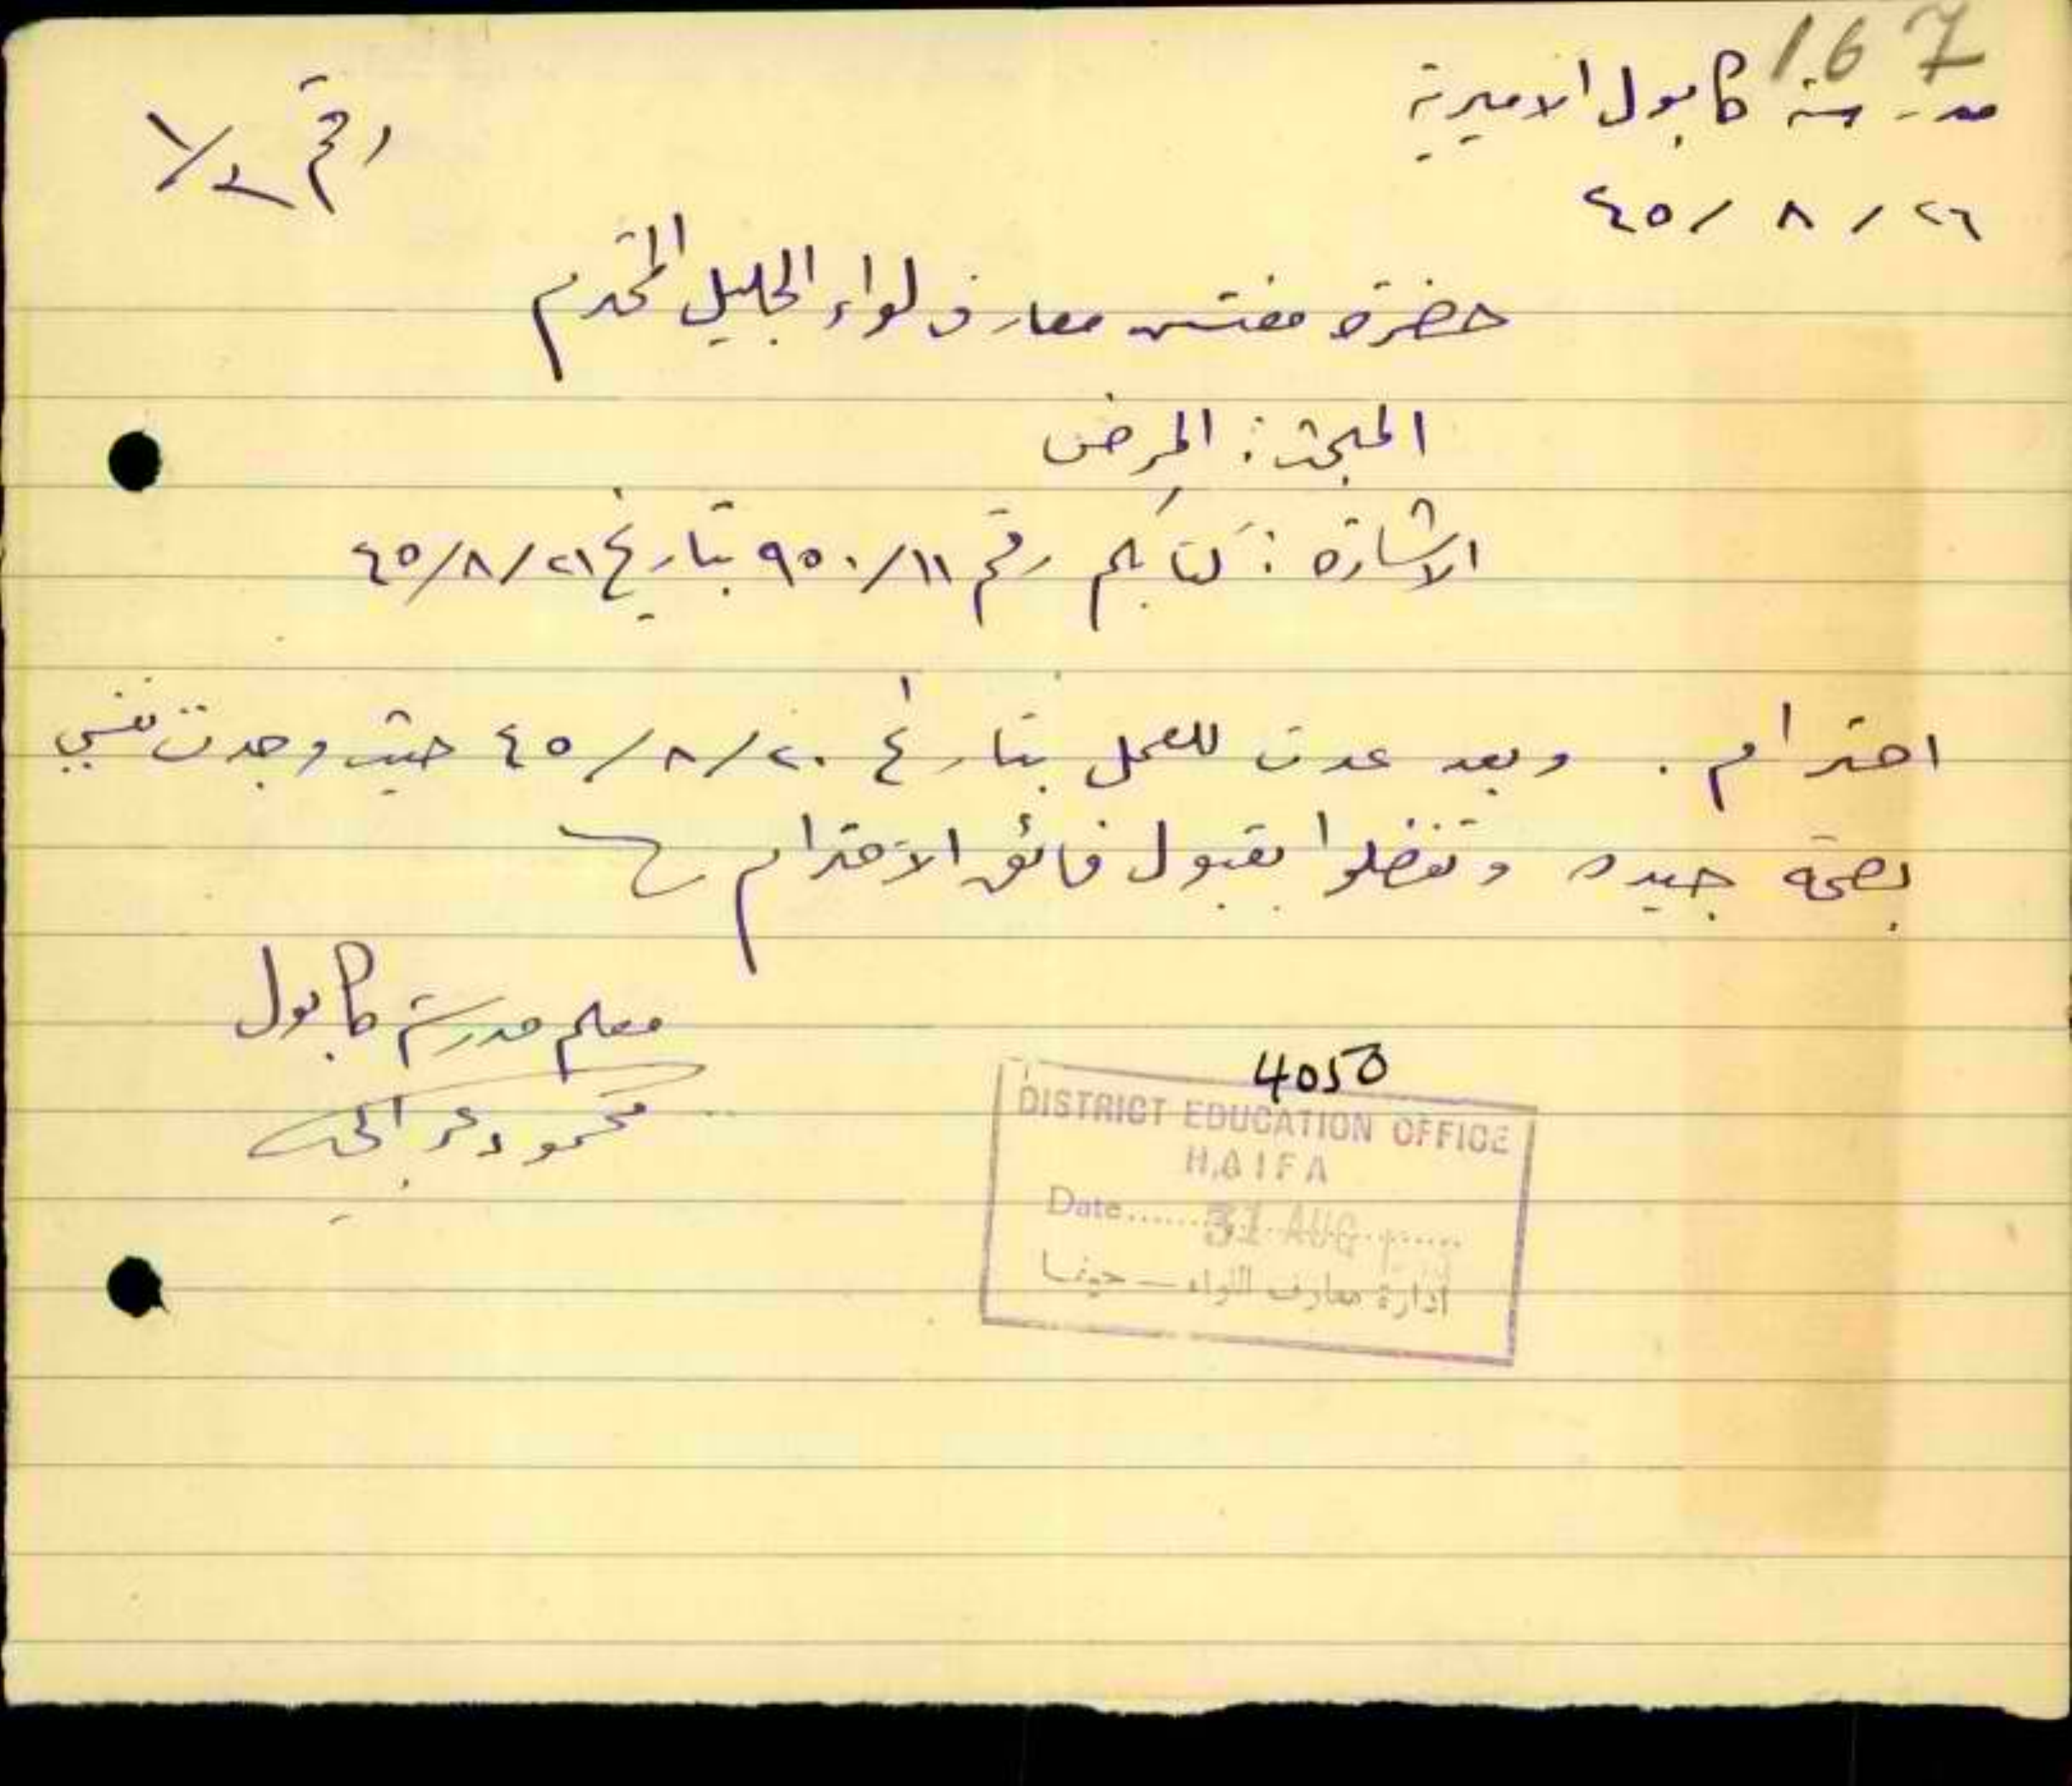 167
مدرسة كابول الاميرية
رقم ١/٢
٢٦/ ٨ /٤٥
حضرة مفتش معارف لواء الجليل المحترم
المبحث : المرض
الاشارة : كتابكم رقم ٩٥٠/١١ بتاريخ ٤٥/٨/٢١
احترام . وبعد عدت للعمل بتاريخ ٤٥/٨/٢٠ حيث وجدت نفسي
بصحة جيده وتفضلوا بقبول فائق الاحترام
معلم مدرسة كابول
محمود
4050
DISTRICT EDUCATION OFFICE
HAIFA
Date ........ 31 AUG ........
ادارة معارف اللواء — حيفا